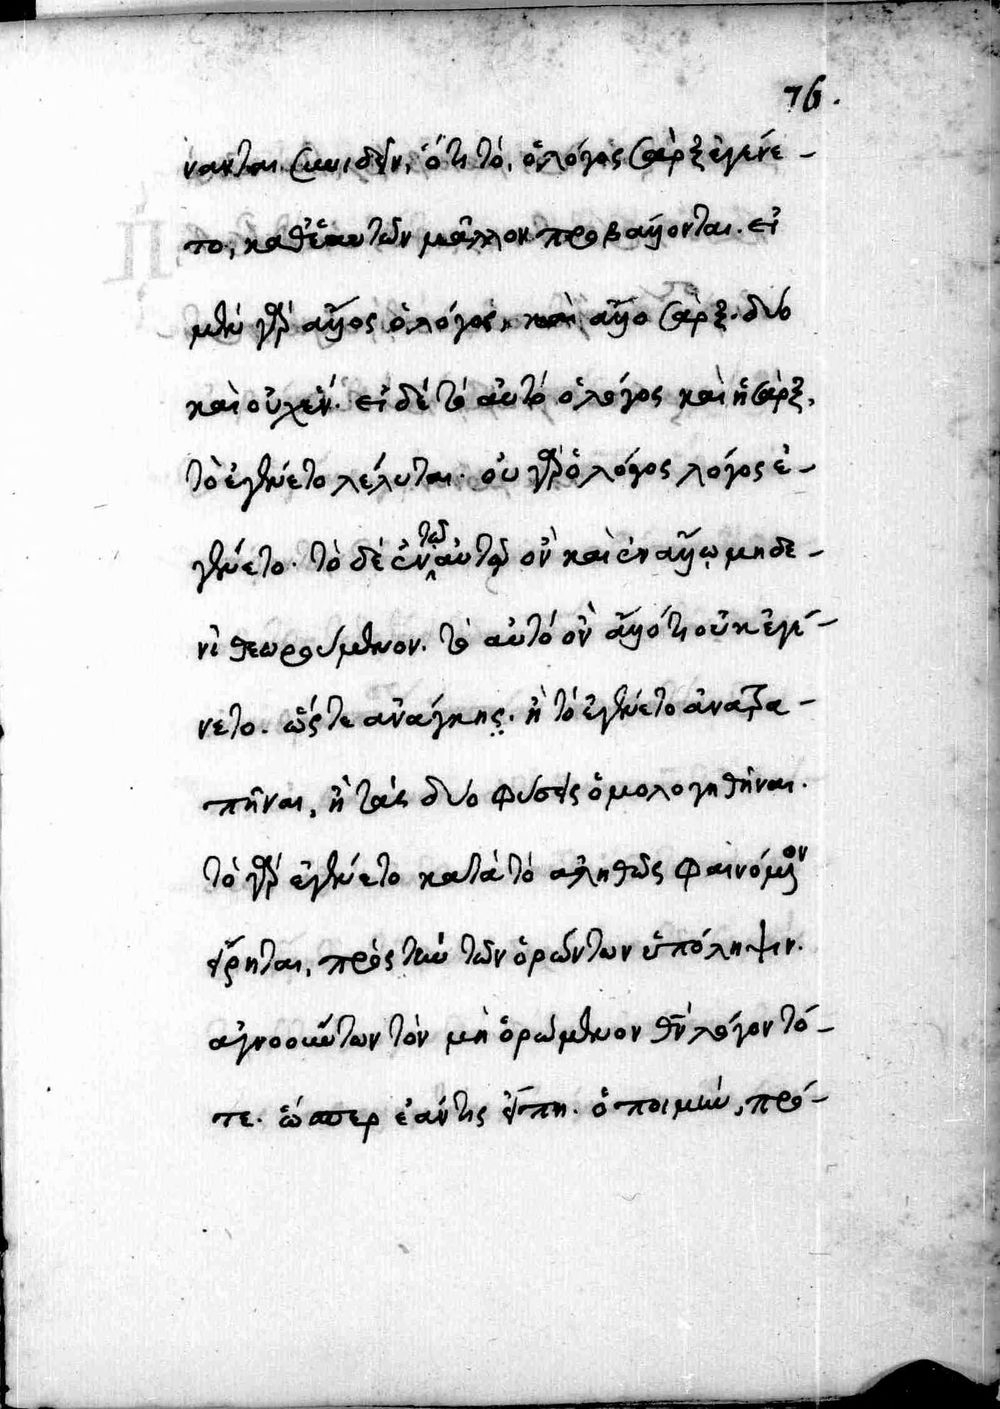 76.
νανται συνιδεῖν, ὅτι τὸ, ὁ λόγος σὰρξ ἐγένε-
το, καθ' ἑαυτῶν μᾶλλον προβάλλονται. εἰ
μὲν γὰρ ἄλλος ὁ λόγος, καὶ ἄλλο σάρξ. δύο
καὶ οὐχ ἕν. εἰ δὲ τὸ αὐτὸ ὁ λόγος καὶ ἡ σὰρξ,
τὸ ἐγένετο λέλυται. οὐ γὰρ ὁ λόγος λόγος ἐ-
γένετο. τὸ δὲ ἐν τῶ αὐτῶ ὂν καὶ ἐν ἄλλω μηδε-
νὶ θεωρούμενον. τὸ αὐτὸ ὂν ἄλλό τι οὐκ ἐγέ-
νετο. ὥστε ἀνάγκης. ἢ τὸ ἐγένετο ἀνατρα-
πῆναι, ἢ τὰς δύο φύσεις ὁμολογηθῆναι.
τὸ γὰρ ἐγένετο κατὰ τὸ ἀληθῶς φαινόμενον
εἴρηται, πρὸς τὴν τῶν ὁρώντων ὑπόληψιν.
ἀγνοούντων τὸν μὴ ὁρώμενον θεὸν λόγον τό-
τε. ὥσπερ ἐάν τις εἴπη. ὁ ποιμὴν, πρό-